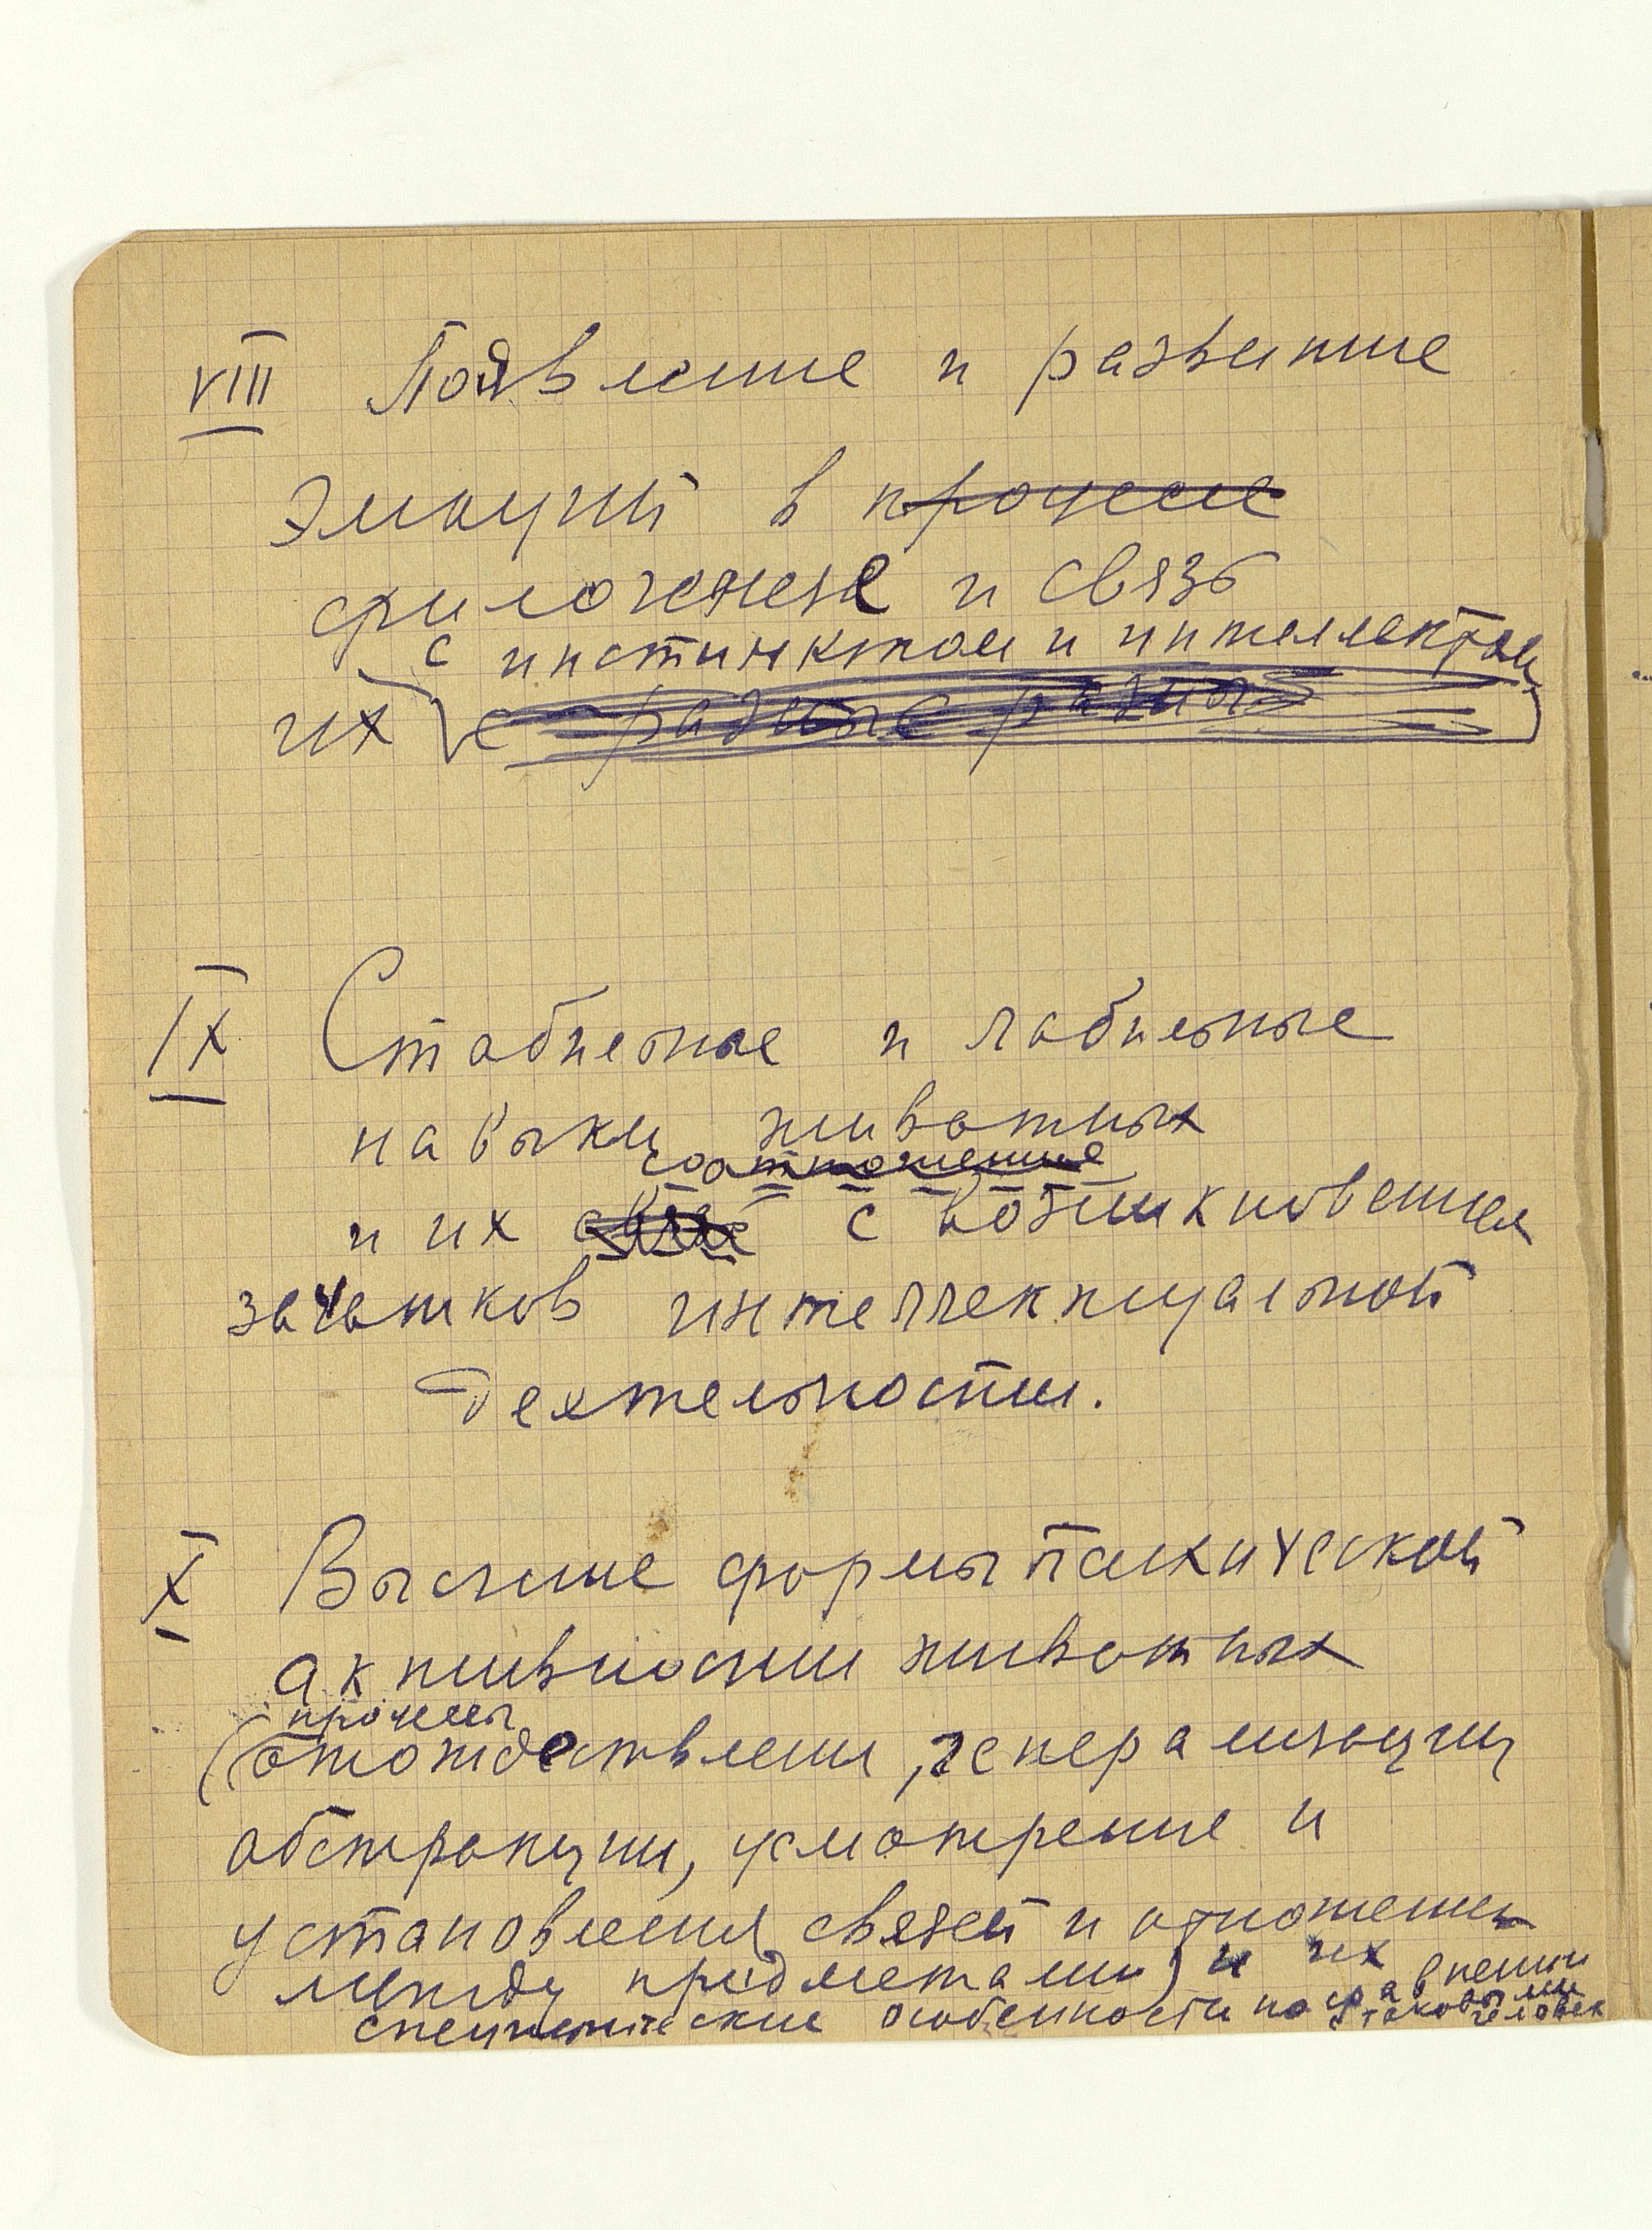 VIII Появление и развитие
эмоций в процессе
филогенезе и связь
с инстинктом и интеллектом
их
IX Стабильные и лабильные
навыки животных
соотношение
и их связь с возникновением
зачатков интеллектуальной
деятельности.
X Высшие формы психической
активности животных
процессы
(отождествления, генерализации,
абстракции, усмотрение и
установления связей и отношений
между предметами) и их
специфические особенности по сравнению
с таковыми
человек